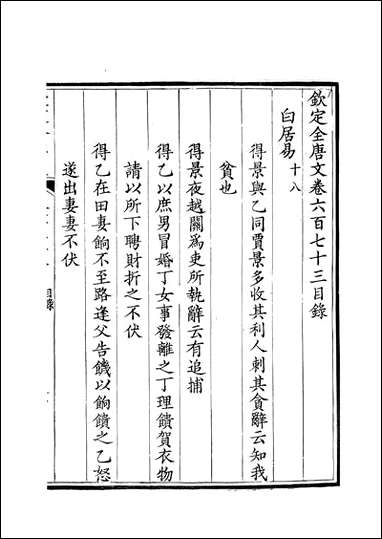 欽定全唐文卷六百七十三目錄
白居易十八
得景與乙同賈景多收其利人刺其貪辭云知我
貧也
得景夜越關為吏所執辭云有追捕
得乙以庶男冒婚丁女事發離之丁理饋賀衣物
請以所下聘財折之不伏
得乙在田妻餉不至路逢父告饑以餉饋之乙怒
遂出妻妻不伏
目錄